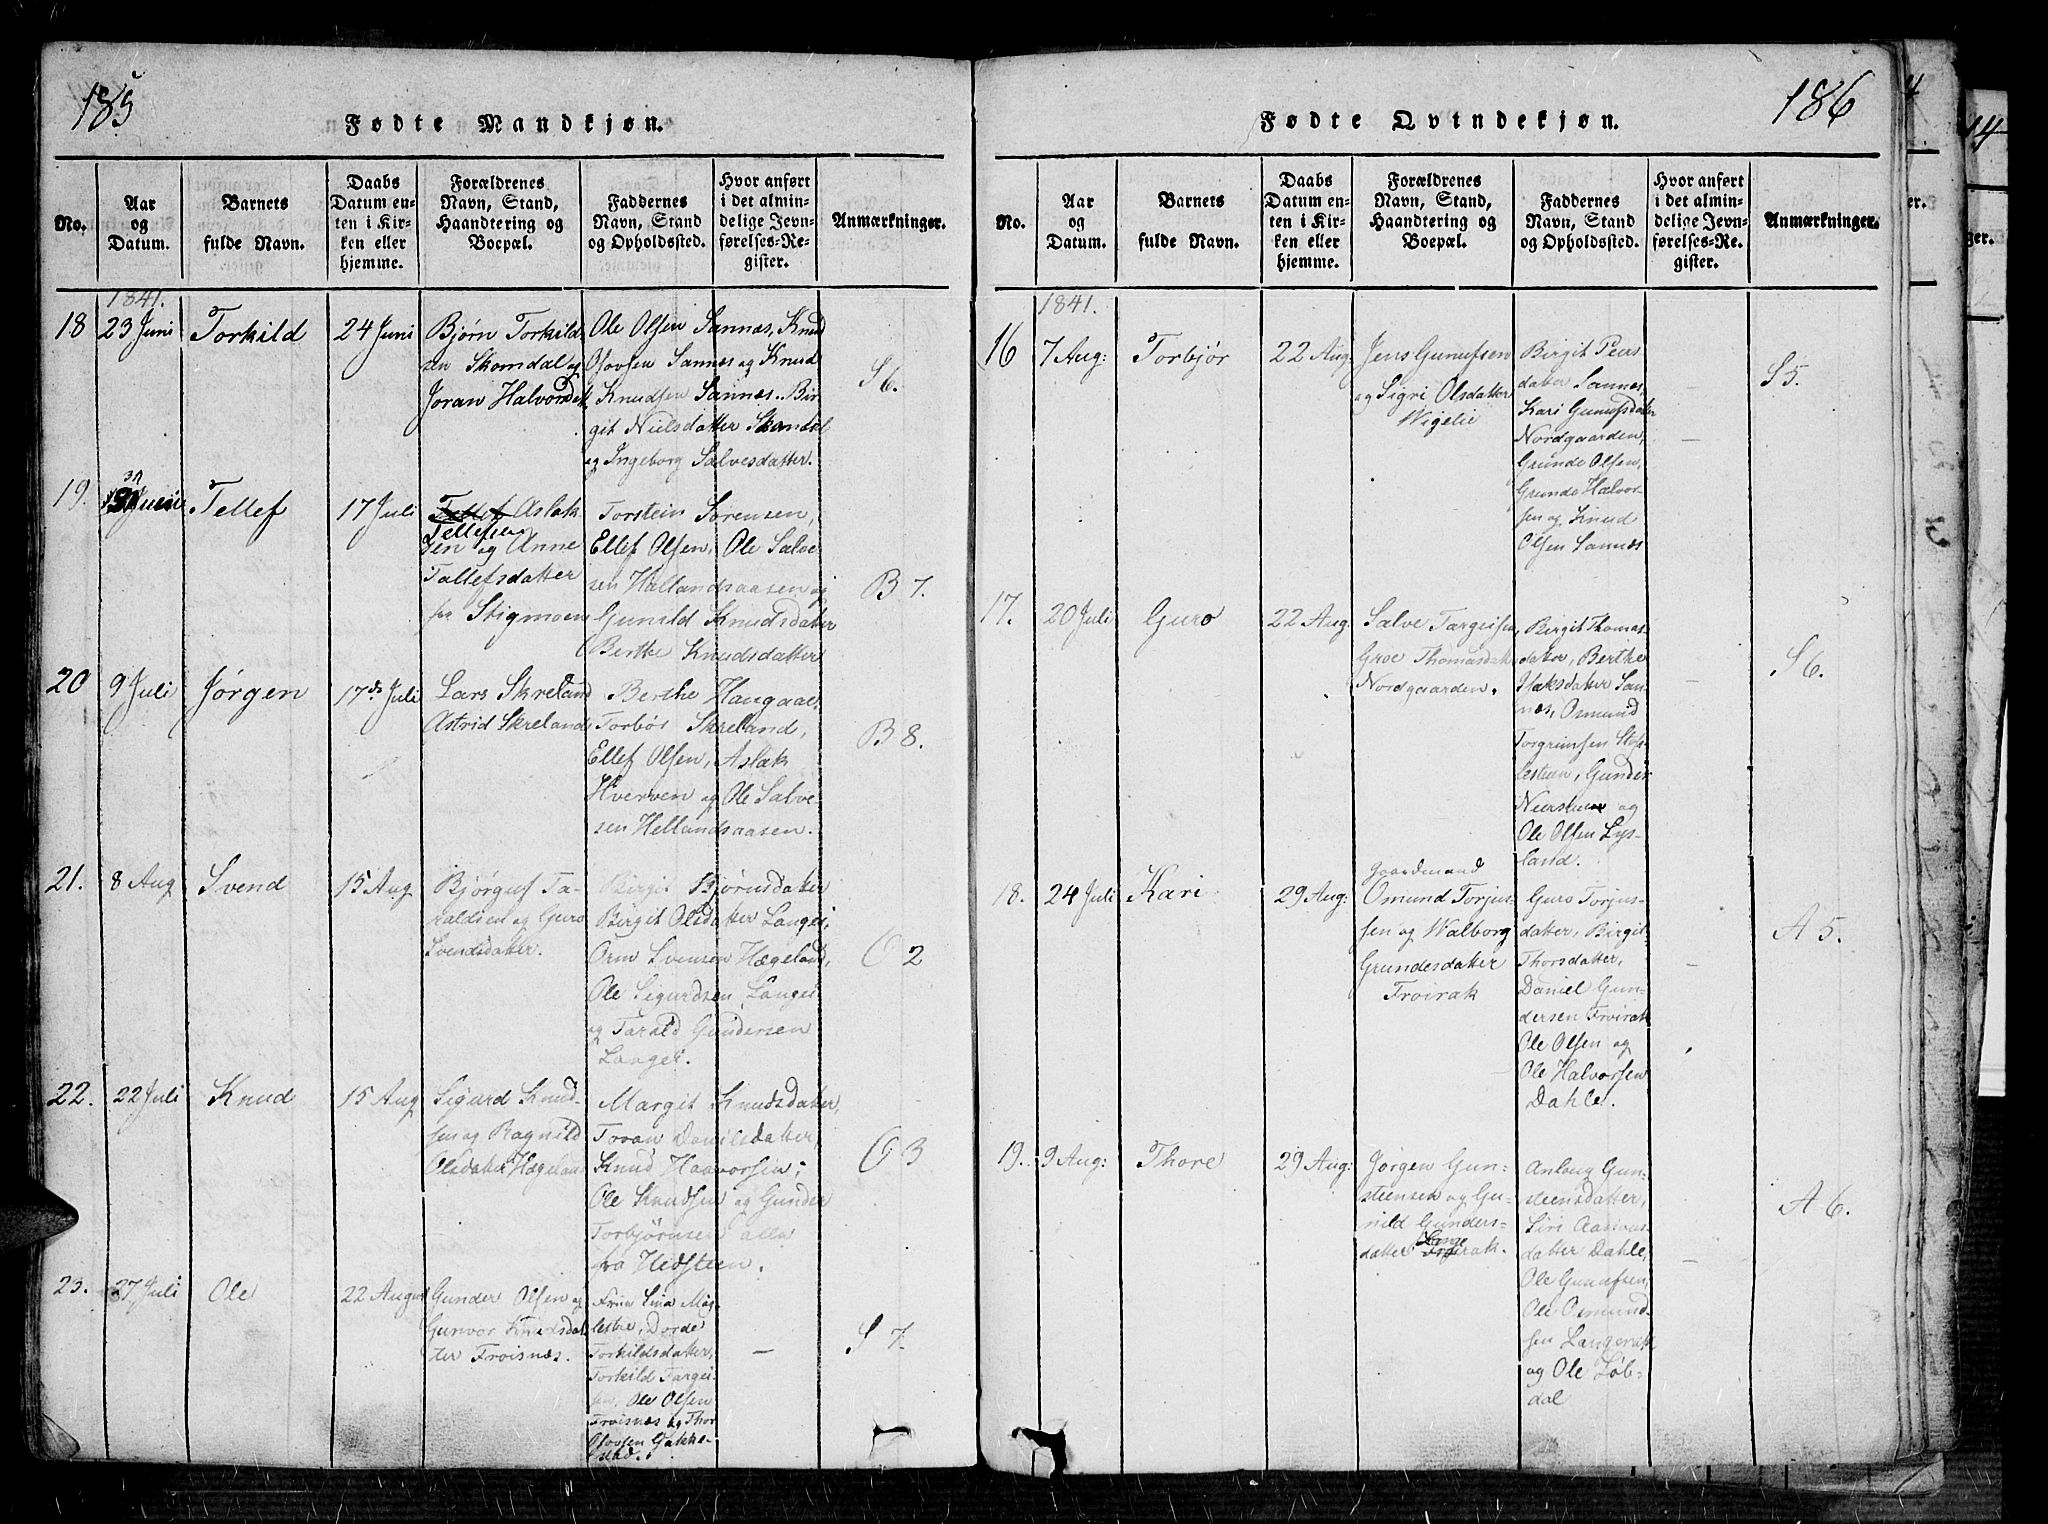 185
Fødte Mandkjøn.
No.
Aar og Datum.
Barnets fulde Navn.
Daabs Datum enten i Kirken eller hjemme.
Forældrenes Navn, Stand, Haandtering og Boepæl.
Faddernes Navn, Stand og Opholdssted.
Hvor anført i det almindelige Jevnførelses-Register.
Anmærkninger.
1841.
18
23 Juni
Torkild
24 Juni
Bjørn Torkild-
sen Skomdal og
Joran Halvorsdatt
Ole Olsen Sannæs, Knud
Olovsen Sannæs og Knud
Knudsen Sannæs. Bir
git Nielsdatter Skomdal
og Ingeborg Salvesdatter.
S 6.
19.
30 Juni
Tellef
17 Juli
Tellef Aslak
Tellefsen
sen og Anne
Tallefsdatter
fra Stigmoen
Torstein Sørensen,
Ellef Olsen, Ole Salve
sen Hallandsaasen og
Gunild Knudsdatter
Berthe Knudsdatter
B 7.
20
9 Juli
Jørgen
17de Juli
Lars Skreland
Astrid Skreland
Berthe Haugaas,
Torbør Skreland,
Ellef Olsen, Aslak
Hverven og Ole Salve-
sen Hellandsaasen.
B 8.
21.
8 Aug
Svend
15 Aug
Bjørguf Ta-
raldsen og Guro
Svendsdatter.
Birgit Bjørnsdatter
Birgit Olsdatter Langei,
Orm Svensen Hægeland,
Ole Sigurdsen, Langei
og Tarald Gundersen
Langei.
O 2
22.
22 Juli
Knud
15 Aug
Sigurd Knud-
sen og Ragnild
Olsdatter Hægeland
Margit Knudsdatter,
Toran Danielsdatter,
Knud Haavorsen,
Ole Knudsen og Gunder
Torbjørnsen alle
fra Hedsteen.
O 3
23.
27 Juli
Ole
22 August
Gunder Olsen og
Gunvor Knudsdat
ter Froisnæs.
Frue Lina Mag-
lestue, Dorde
Torkildsdatter,
Torkild Targei-
sen, Ole Olsen
Froisnæs og Thor
Olovsen Gakke-
stad.
—
S 7.
186
Fødte Qvindekjøn.
No.
Aar og Datum.
Barnets fulde Navn.
Daabs Datum enten i Kirken eller hjemme.
Forældrenes Navn, Stand, Haandtering og Boepæl.
Faddernes Navn, Stand og Opholdssted.
Hvor anført i det almindelige Jevnførelses-Register.
Anmærkninger.
1841.
16
7 Aug:
Torbjør
22 Aug
Jens Gunufsen
og Sigri Olsdatter
Wigelie
Birgit Peers
datter Sannæs,
Kari Gunufsdatter
Nordgaarden,
Grunde Olsen,
Grunde Halvor-
sen og Knud
Olsen Sannæs
—
S 5.
17.
20 Juli
Guro
22 Aug
Salve Targeisen,
Groe Thomasdatter
Nordgaarden.
Birgit Thomas-
datter, Berthe
Isaksdatter San-
næs, Osmund
Torgrimsen
Gunder
og
Ole Olsen Lys-
land.
—
S 6.
18.
24 Juli
Kari
29 Aug:
Gaardmand
Omund Torjus-
sen og Walborg
Grundesdatter
Froirak
Guro Torjus-
datter, Birgit
Thorsdatter,
Daniel Gun-
dersen Froirak
Ole Olsen og
Ole Halvorsen
Dahle.
—
A 5.
19.
9 Aug:
Thore
29 Aug:
Jørgen Gun-
steensen og Gu-
nild Gunders-
datter Langerak.
Anlaug Gun-
steensdatter,
Siri Aanons-
datter Dahle,
Ole Gunufsen,
Ole Osmund-
sen Langerak
og Ole Løb-
dal
—
A 6.